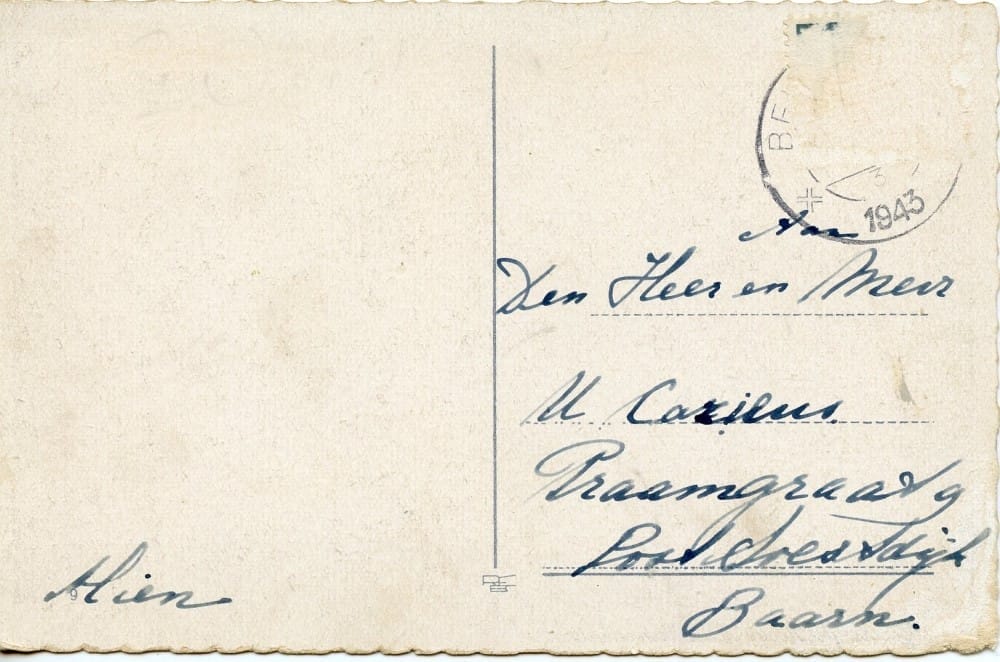 1943
Aan
Den Heer en Mevr
U Cozieus
Praamgraat 9
Post Soestdijk
Baarn.
Mien
9